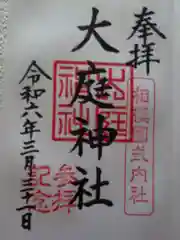 奉拝
相模國式内社
大庭神社
令和六年三月三十一日
参拝
記念